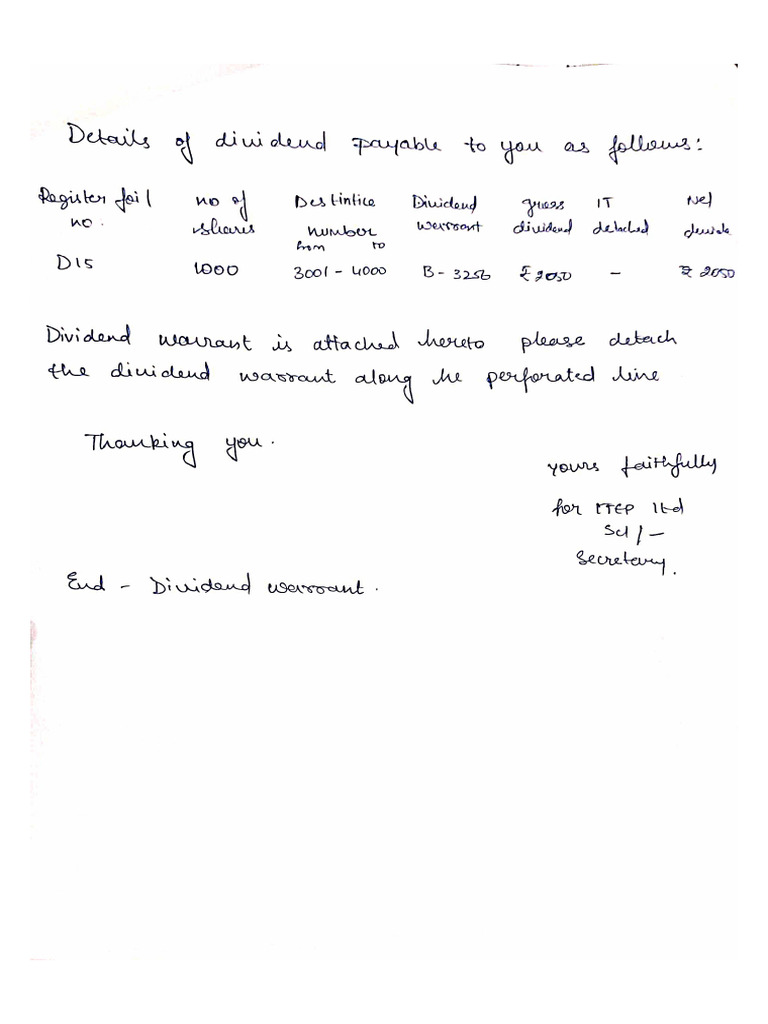 Details of dividend payable to you as follows:
Register foil no of Destintice Dividend gross IT Net
no. shares number warrant dividend detached
from to
D15 1000 3001 - 4000 B - 3256 ₹ 2050 - ₹ 2050
Dividend warrant is attached hereto please detach
the dividend warrant along he perforated line
Thanking you.
yours faithfully
for ITEP ltd
Sd/-
Secretary.
End - Dividend warrant.